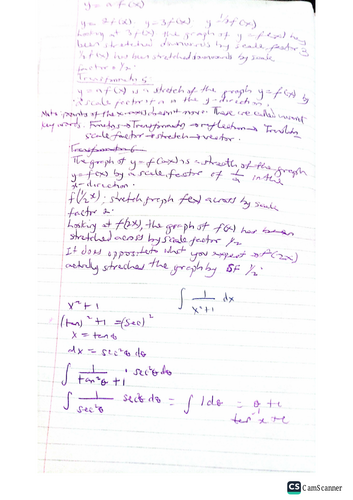 y = a f(x)
y = 2f(x) y = 3f(x) y = 1/2 f(x)
Looking at 3f(x) the graph of y = f(x)
been stretched by scale factor 3
1/2 f(x) has been stretched downwards by scale
factor 1/2.
Transformation 5
y = a f(x) is a stretch of the graph y = f(x) by
a scale factor of a in the y-direction.
Note: points of the x-axis doesn't move. These are called invariant
key words
scale factor → stretch → vector.
Transformation 6
The graph of y = f(ax) is a stretch of the graph
y = f(x) by a scale factor of 1/a in the
x-direction.
f(1/2 x): stretch graph f(x) across by scale
factor 2.
Looking at f(2x), the graph of f(x) has been
stretched across by scale factor 1/2
It does opposite to what you expect so f(2x)
actually stretches the graph by SF 1/2.
x² + 1 ∫ 1/(x²+1) dx
(tan)² + 1 = (sec)²
x = tanθ
dx = sec²θ dθ
∫ 1/(tan²θ + 1) · sec²θ dθ
∫ 1/sec²θ sec²θ dθ = ∫ 1 dθ = θ + c
tan⁻¹ x + c
CS CamScanner